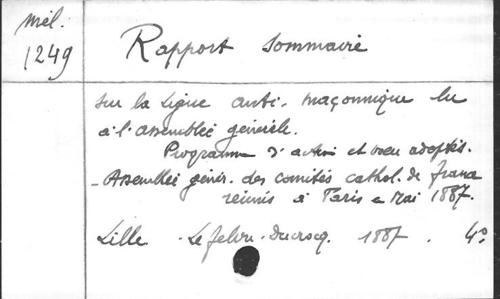 Mél.
1249
Rapport sommaire
sur la Ligue anti-maçonnique lu
à l'assemblée générale.
Programme d'action et vœu adoptés.
- Assemblée génér. des comités cathol. de France
réunis à Paris en Mai 1887.
Lille - Lefebvre-Ducrocq. 1887. 4º